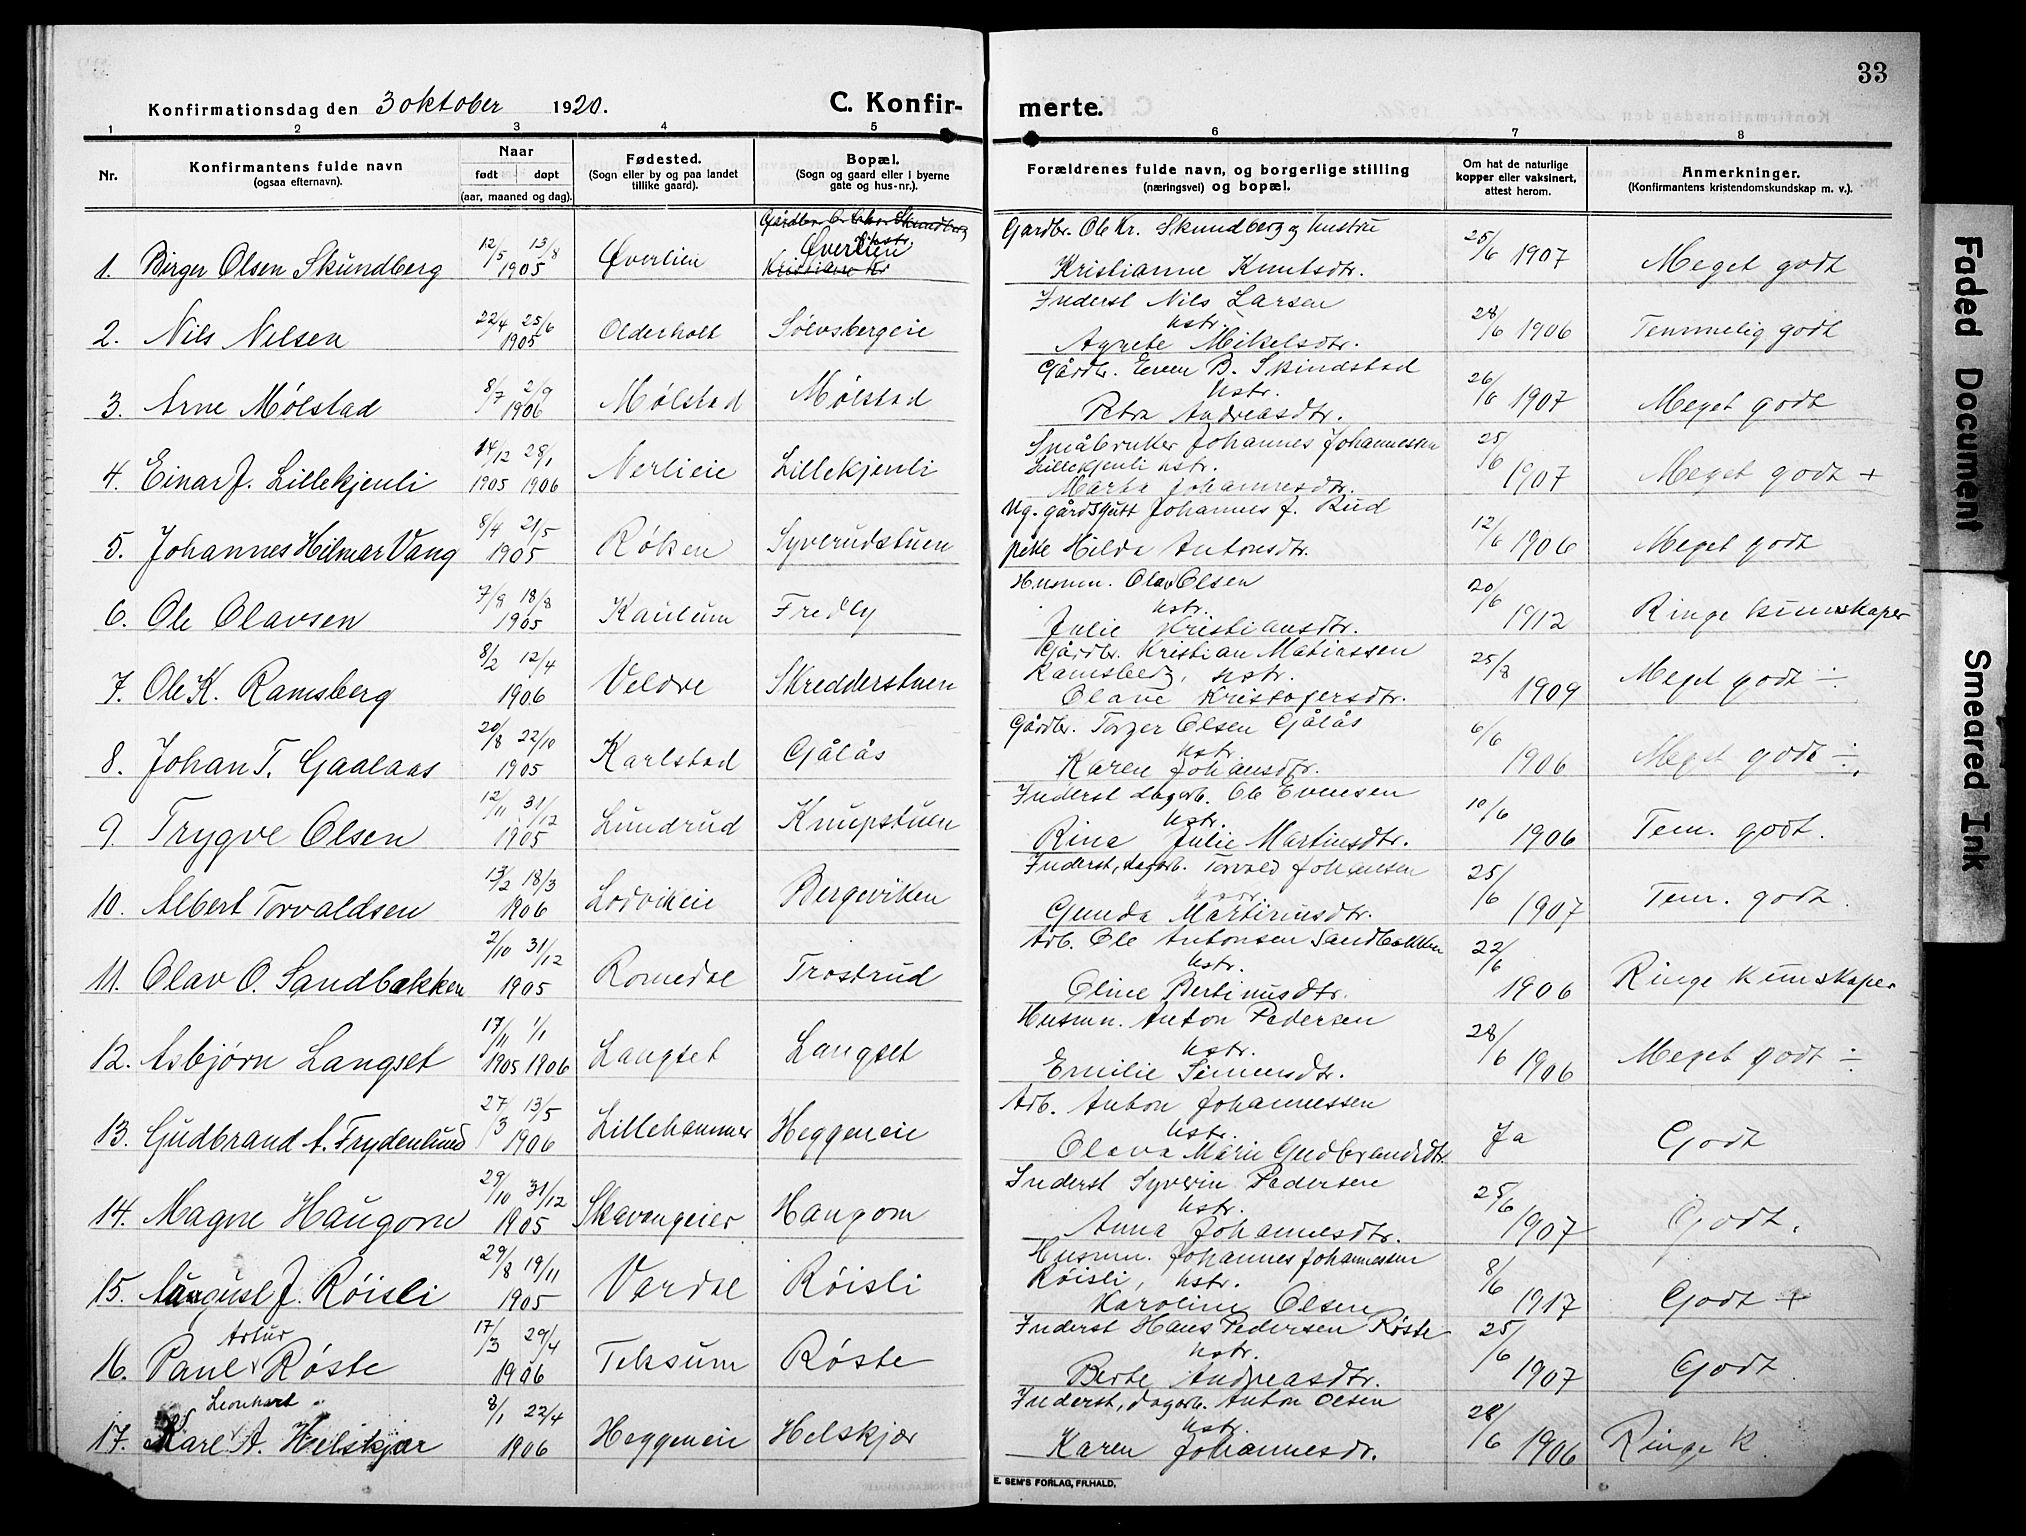 33
Konfirmationsdag den 3 oktober 1920.
C. Konfirmerte.
1 2 3 4 5 6 7 8
Nr.
Konfirmantens fulde navn
(ogsaa efternavn).
Naar
født døpt
(aar, maaned og dag).
Fødested.
(Sogn eller by og paa landet
tillike gaard).
Bopæl.
(Sogn og gaard eller i byerne
gate og hus-nr.).
Forældrenes fulde navn, og borgerlige stilling
(næringsvei) og bopæl.
Om hat de naturlige
kopper eller vaksinert,
attest herom.
Anmerkninger.
(Konfirmantens kristendomskundskap m. v.).
Gardbr. Ole Kr. Skundberg og hustru
1. Birger Olsen Skundberg 12/5 13/8 1905 Øverlien Øverlien Kristianne Knutsdtr. 25/6 1907 Meget godt
Inderst Nils Larsen
hstr.
2. Nils Nilsen 22/4 25/6 1905 Olderholt Sølvsbergeie Agnete Mikelsdtr. 28/6 1906 Temmelig godt
Gårdbr. Even B. Skindstad
hstr.
3. Arne Mølstad 8/7 2/9 1906 Mølstad Mølstad Petra Andreasdtr. 26/6 1907 Meget godt
Småbruker Johannes Johannessen
Lillekjenli hstr.
4. Einar J. Lillekjenli 14/12 1905 28/1 1906 Nerlieie Lillekjenli Marta Johannesdtr. 25/6 1907 Meget godt +
Ug. gårdsgutt Johannes J. Rud
5. Johannes Hilmar Vang 8/4 21/5 1905 Røken Syverudstuen pike Hilda Antonsdtr. 12/6 1906 Meget godt
Husmn. Olav Olsen
hstr.
6. Ole Olavsen 7/9 18/8 1905 Kaulum Fredly Julie Kristiansdtr. 20/6 1912 Ringe kunnskaper
Gårdbr. Kristian Matiassen
Ramsberg, hstr.
7. Ole K. Ramsberg 8/2 12/4 1906 Veldre Skredderstuen Olave Kristofersdtr. 25/8 1909 Meget godt ÷
Gårdbr. Torger Olsen Gjålås
hstr.
8. Johan T. Gaalaas 20/8 22/10 1905 Karlstad Gjålås Karen Johansdtr. 6/6 1906 Meget godt ÷
Inderst dagarb. Ole Evensen
hstr.
9. Trygve Olsen 12/11 31/12 1905 Lundrud Knupstuen Rina Julie Martinsdtr. 10/6 1906 Tem. godt.
Inderst, dagarb. Torvald Johansen
10. Albert Torvaldsen 13/2 18/3 1906 Lodvikeie Bergeviken Gunda Martinusdtr. 25/6 1907 Tem. godt.
Arb. Ole Antonsen Sandbakken
hstr.
11. Olav O. Sandbakken 2/10 31/12 1905 Romedal Trostrud Oline Bertinusdtr. 22/6 1906 Ringe kunnskaper
Husmn. Anton Pedersen
hstr.
12. Asbjørn Langset 17/11 1905 1/1 1906 Langset Langset Emilie Simensdtr. 28/6 1906 Meget godt ÷
Arb. Anton Johannessen
hstr.
13. Gudbrand A. Frydenlund 27/3 13/5 1906 Lillehammer Heggeneie Olava Marie Gudbrandsdtr. Ja Godt
Inderst Syverin Pedersen
hstr.
14. Magne Haugom 29/10 31/12 1905 Skavengeier Haugom Anna Johannesdtr. 25/6 1907 Godt.
Husmn. Johannes Johannessen
Røisli, hstr.
15. August J. Røisli 29/8 19/11 1905 Vardal Røisli Karoline Olsen 8/6 1917 Godt +
Inderst Hans Pedersen Røste
Artur hstr.
16. Paul Røste 17/3 29/4 1906 Teksum Røste Berte Andreasdtr. 25/6 1907 Godt
Inderst, dagarb. Anton Olsen
Leonhart hstr.
17. Karl A. Helskjær 8/1 22/4 1906 Heggeneie Helskjær Karen Johannesdr. 28/6 1906 Ringe k.
E. SEM'S FORLAG, FR.HALD.
Faded Document
Smeared Ink